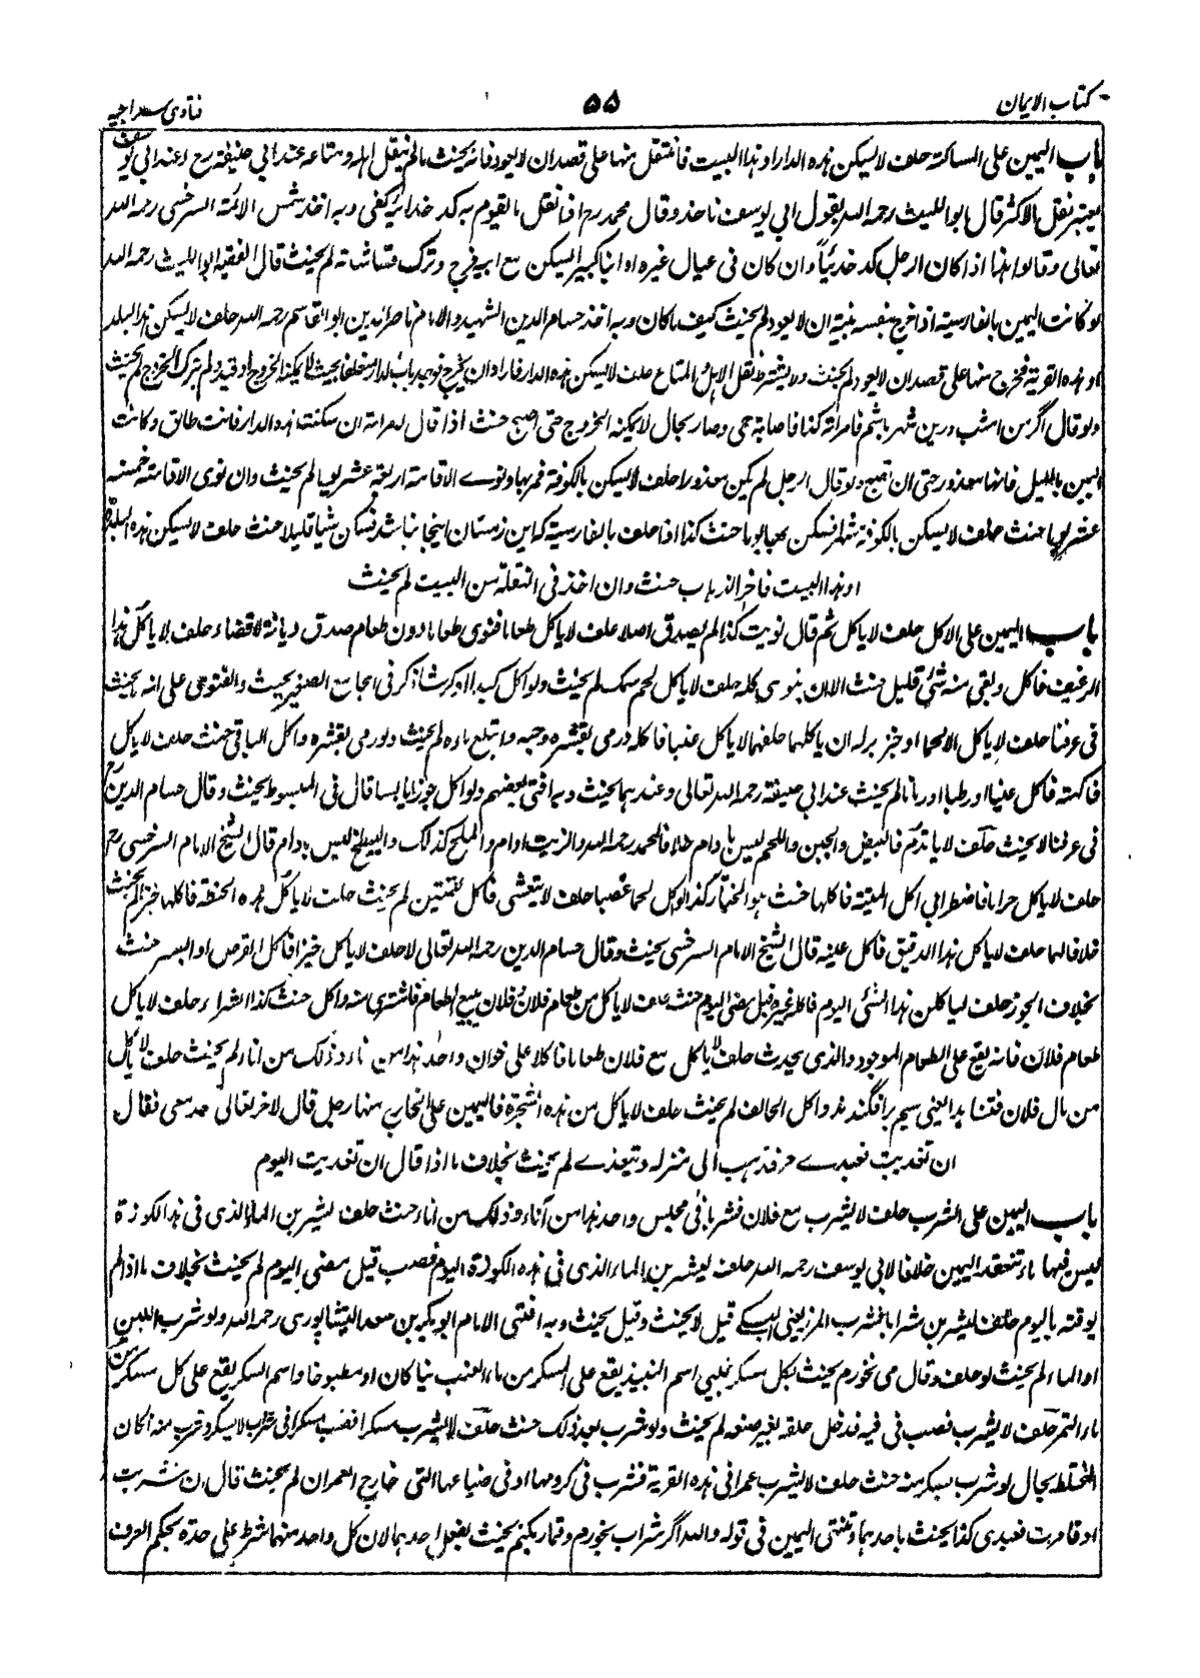 كتاب الايمان
۵۵
فتاوى سراجيه
باب اليمين على المساكنة حلف لا يسكن هذه الدار او هذا البيت فانتقل منها على قصد ان لا يعود فانه يحنث ما لم ينقل اهله ومتاعه عند ابي حنيفة رح وعند ابي يوسف
يعتبر نقل الاكثر قال ابو الليث رحمه الله بقول ابي يوسف ناخذ وقال محمد رح اذا نقل ما يقوم به كد خدائيه كفى وبه اخذ شمس الائمة السرخسي رحمه الله
تعالى وقالوا هذا اذا كان الرجل كد خدائيا وان كان في عيال غيره او ابنا كبيرا يسكن مع ابيه فخرج وترك قماشاته لم يحنث قال الفقيه ابو الليث رحمه الله
لو كانت اليمين بالفارسية اذا خرج بنفسه بنية ان لا يعود لم يحنث كيف ما كان وبه اخذ حسام الدين الشهيد والامام ناصر الدين ابو القاسم رحمه الله حلف لا يسكن هذا البلد
او هذه القرية فخرج منها على قصد ان لا يعود لم يحنث ولا يشترط نقل الاهل المتاع حلف لا يسكن هذه الدار فاراد ان يخرج فوجد باب الدار مغلقا بحيث لا يمكنه الخروج او قيد ولم يترك الخروج لم يحنث
ولو قال اگر من امشب درين شهر باشم فامراته كذا فاصابته حمى وصار بحال لا يمكنه الخروج حتى اصبح حنث اذا قال لامراته ان سكنت هذه الدار فانت طالق وكانت
اليمين بالليل فانها معذورة حتى ان تصبح ولو قال الرجل لم يكن معذورا حلف لا يسكن بالكوفة فمر بها ونوى الاقامة اربعة عشر يوما لم يحنث وان نوى الاقامة خمسة
عشر يوما حنث حلف لا يسكن بالكوفة شهرا فسكن بها يوما حنث كذا اذا حلف بالفارسية كه اين زمستان اينجا نباشد فسكن شيئا قليلا حنث حلف لا يسكن هذه البلدة
او هذا البيت فاخر الذهاب حنث وان اخذ في النقلة من البيت لم يحنث
باب اليمين على الاكل حلف لا ياكل ثم قال نويت كذا لم يصدق اصلا حلف لا ياكل طعاما فنوى طعاما دون طعام صدق ديانة لا قضاء حلف لا ياكل هذا
الرغيف فاكل وبقى منه شئ قليل حنث الا ان ينوى كله حلف لا ياكل لحم سمك لم يحنث ولو اكل كبدا او كرشا ذكر في الجامع الصغير يحنث والفتوى على انه لا يحنث
في عرفنا حلف لا ياكل الا لحما او خبز بر له ان ياكلهما حلف لا ياكل عنبا فاكله ورمى بقشره وحبه وابتلع ماءه لم يحنث ولو رمى بقشره واكل الباقي حنث حلف لا ياكل
فاكهة فاكل عنبا او رطبا او رمانا لم يحنث عند ابي حنيفة رحمه الله تعالى وعندهما يحنث وبه افتى بعضهم ولو اكل جوزا يابسا قال في المبسوط يحنث وقال حسام الدين رح
في عرفنا لا يحنث حلف لا ياتدم فالبيض والجبن واللحم ليس بادام خلافا لمحمد رحمه الله والزيت ادام والملح كذلك والبطيخ ليس بادام قال الشيخ الامام السرخسي رح
حلف لا ياكل حراما فاضطر الى اكل الميتة فاكلها حنث هو المختار كذا لو اكل لحما غصبا حلف لا يتعشى فاكل لقمتين لم يحنث حلف لا ياكل هذه الحنطة فاكلها خبزا لم يحنث
خلافا لهما حلف لا ياكل هذا الدقيق فاكل عينه قال الشيخ الامام السرخسي يحنث وقال حسام الدين رحمه الله تعالى لا حلف لا ياكل خبزا فاكل القرص او البسر حنث
بخلاف الجوز حلف لياكلن هذا الشئ اليوم فاكله غيره قبل مضى اليوم حنث حلف لا ياكل من طعام فلان وفلان يبيع الطعام فاشترى منه واكل حنث كذا الشراء حلف لا ياكل
طعام فلان فانه يقع على الطعام الموجود والذي يحدث حلف لا ياكل مع فلان طعاما فاكلا على خوان واحد هذا من اناء وذلك من اناء لم يحنث حلف لا ياكل
من مال فلان فتناهدا يعنى سيم برافگندند واكل الحالف لم يحنث حلف لا ياكل من هذه الشجرة فاليمين على الخارج منها رجل قال لاخر تعالى تغد معى فقال
ان تغديت فعبدى حر فذهب الى منزله وتغدى لم يحنث بخلاف ما اذا قال ان تغديت اليوم
باب اليمين على الشرب حلف لا يشرب مع فلان فشربا في مجلس واحد هذا من اناء وذلك من اناء حنث حلف ليشربن الماء الذى في هذا الكوز
ليس فيها ماء تنعقد اليمين خلافا لابي يوسف رحمه الله حلف ليشربن الماء الذى في هذه الكوزة اليوم فصب قبل مضى اليوم لم يحنث بخلاف ما اذا لم
يوقته باليوم حلف ليشربن شرابا فشرب المز يعنى قيل لا يحنث وقيل يحنث وبه افتى الامام ابو بكر بن سعد النيشاپورى رحمه الله ولو شرب اللبن
او الماء لم يحنث لو حلف وقال مى نخورم يحنث بكل مسكر نبيى اسم النبيذ يقع على المسكر من ماء العنب نيا كان او مطبوخا واسم السكر يقع على كل مسكر من
ماء التمر حلف لا يشرب فصب في فيه فدخل حلقه بغير صنعه لم يحنث ولو شرب بعد ذلك حنث حلف لا يشرب مسكرا فصب مسكرا في شراب لا يسكر وشرب منه ان كان
المختلط بحال لو شرب يسكر منه حنث حلف لا يشرب خمرا في هذه القرية فشرب في كرومها او في ضياعها التى خارج العمران لم يحنث قال ان شربت
او قامرت فعبدى كذا يحنث باحدهما وتنتهى اليمين في قوله والله اگر شراب بخورم وقمار بكنم يحنث بفعل احدهما لان كل واحد منهما شرط على حدة بحكم العرف